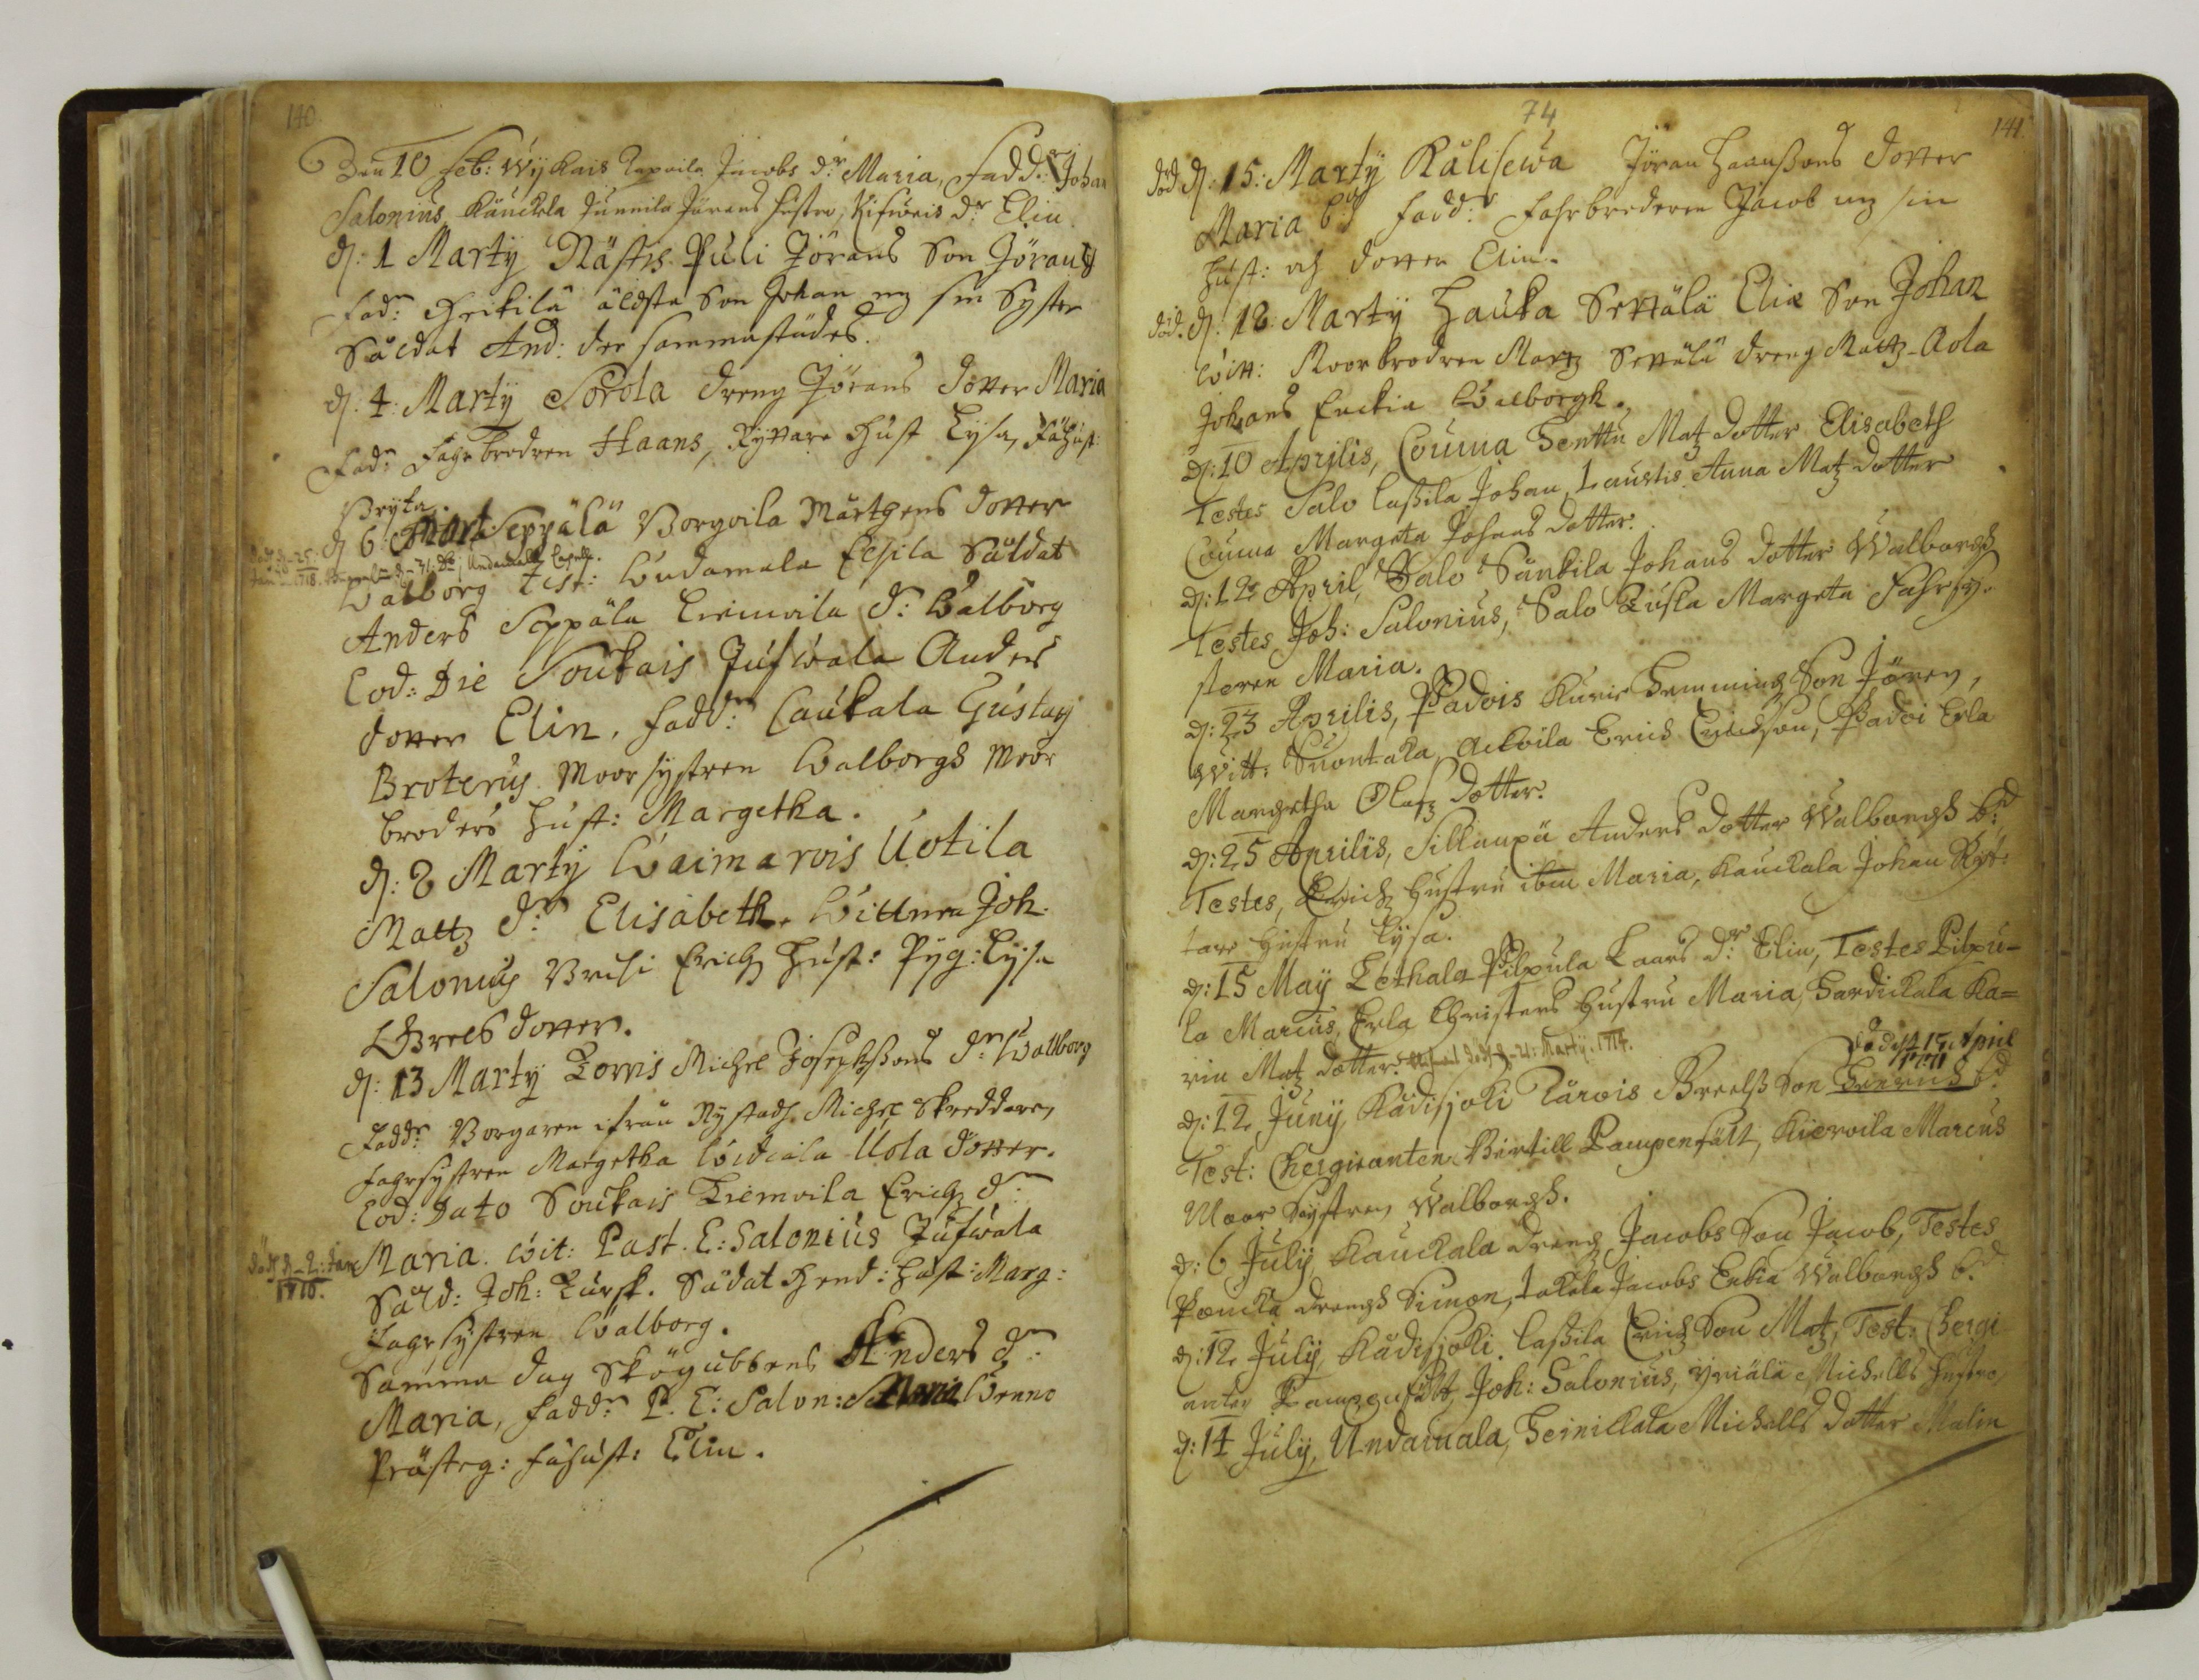 140.
Den 10 Feb: Wijkais Tapoila Jacobs dr Maria, Fadd: Johan
Salonius Käuckola Junnila Jörans hustro, Kifwois dr Elin
d: 1 Marty Nästis Puli Jörans Son Jöran
Fadr Heikilä äldste Son Johan sin Syster
Såldat And: der sammastädes.
d: 4 Marty Sorola dreng Jörans dotter Maria
Fadr Fahrbrodren Haans, Ryttare Hust Lysa, Fähust:
Bryta.
d 6 Mart Seppälä Borgoila Mårthens dotter
Walborg Test: Undamala Eskila Såldat
Anders Seppäla Liemoila d: Walborg
Eod: Die Soukais Jufwala Anders
dotter Elin, Fadd: Caukala Gustav
Broterus Moorsystren Walborgs Moor
broders Hust: Margetha.
d: 8 Marty Waimarois Uotila
Mattz dr Elisabeth. Wittnen Joh:
Salonius Uusi Erichz Hust: Pyg: Lysa
Greels dotter.
d: 13 Marty Lovis Michel Josephssons dr Walborg
Faddr Borgaren ifrån Nystadh Michel Skreddare,
Fahrsystren Margetha Widiala Uola dotter.
Eod: Dato Soukais Tiemoila Erichz dr
Död d. 2: Jan 1716.
Maria. Wit: Past. E: Salonius Jufwala
Såld: Joh: Kursk. Sådat Hend: Hust: Marg:
Fahrsystren Walborg.
Samma dag Skogubbens Anders dr
Maria, Faddr P. E: Salon: Maria
Prästeg: Fähust: Elin.
74
141.
död d: 15: Marty Kålisewa Jöran Haanssons dotter
Maria bd Faddr Fahrbroderen Jacob sin
Hust: och dotter Elin.
död. d: 18: Marty Hauka Settälä Elie Son Johan
Witt: Moorbrodren Martz Settälä dreng Mattz Aola
Johans Enckia Walborgh.
d: 10 Aprilis, Couma Henttu Matz dotter Elisabeth
Testes Salo Lassila Johan, Laustis Anna Matz dotter
Couma Margeta Johans dotter.
d: 12 April, Salo Säntila Johans dotter Walborgh
Testes Joh: Salonius, Salo Kuska Margeta Fahrsy-
steren Maria.
d: 23 Aprilis, Padois Kurir Hemmings Son Jören,
Witt: Suontaka Ackoila Erich Erichsson, Padoi Erla
Margetha Olafz dotter.
d: 25 Aprilis, Sillanpä Anders dotter Walborgh bd
Testes, Erichz Hustru ibm Maria, Kauckala Johan Ryt-
tare Hustru Lysa.
d: 15 Maÿ Lethala Pilpula Laars dr Elin, Testes Pilpu-
la Marcus, Erla Christers Hustru Maria, Hardickala Ka=
rin Matz dotter. död d. 21: Marty. 1714.
död d. 15 April 1771
d: 12 Junÿ, Kådisjoki Tärvis Breels Son Henrich bd
Test: Chergieanten Bertill Pampenfält, Kiervila Marcus
Moor Systren Walborgh.
d: 6 Julÿ Kauckala drengh Jacobs Son Jacob, Testes
Pouckä drengh Simon, Jakola Jacobs Enkia Walborgh bd
d: 12 Julÿ, Kådisjoki Lassila Erichz Son Matz, Test: Chergi
anten Pampenfält, Joh: Salonius, Yriälä Michells hustro
d: 14 Julÿ, Undamala, Heinickala Michells dotter Malin